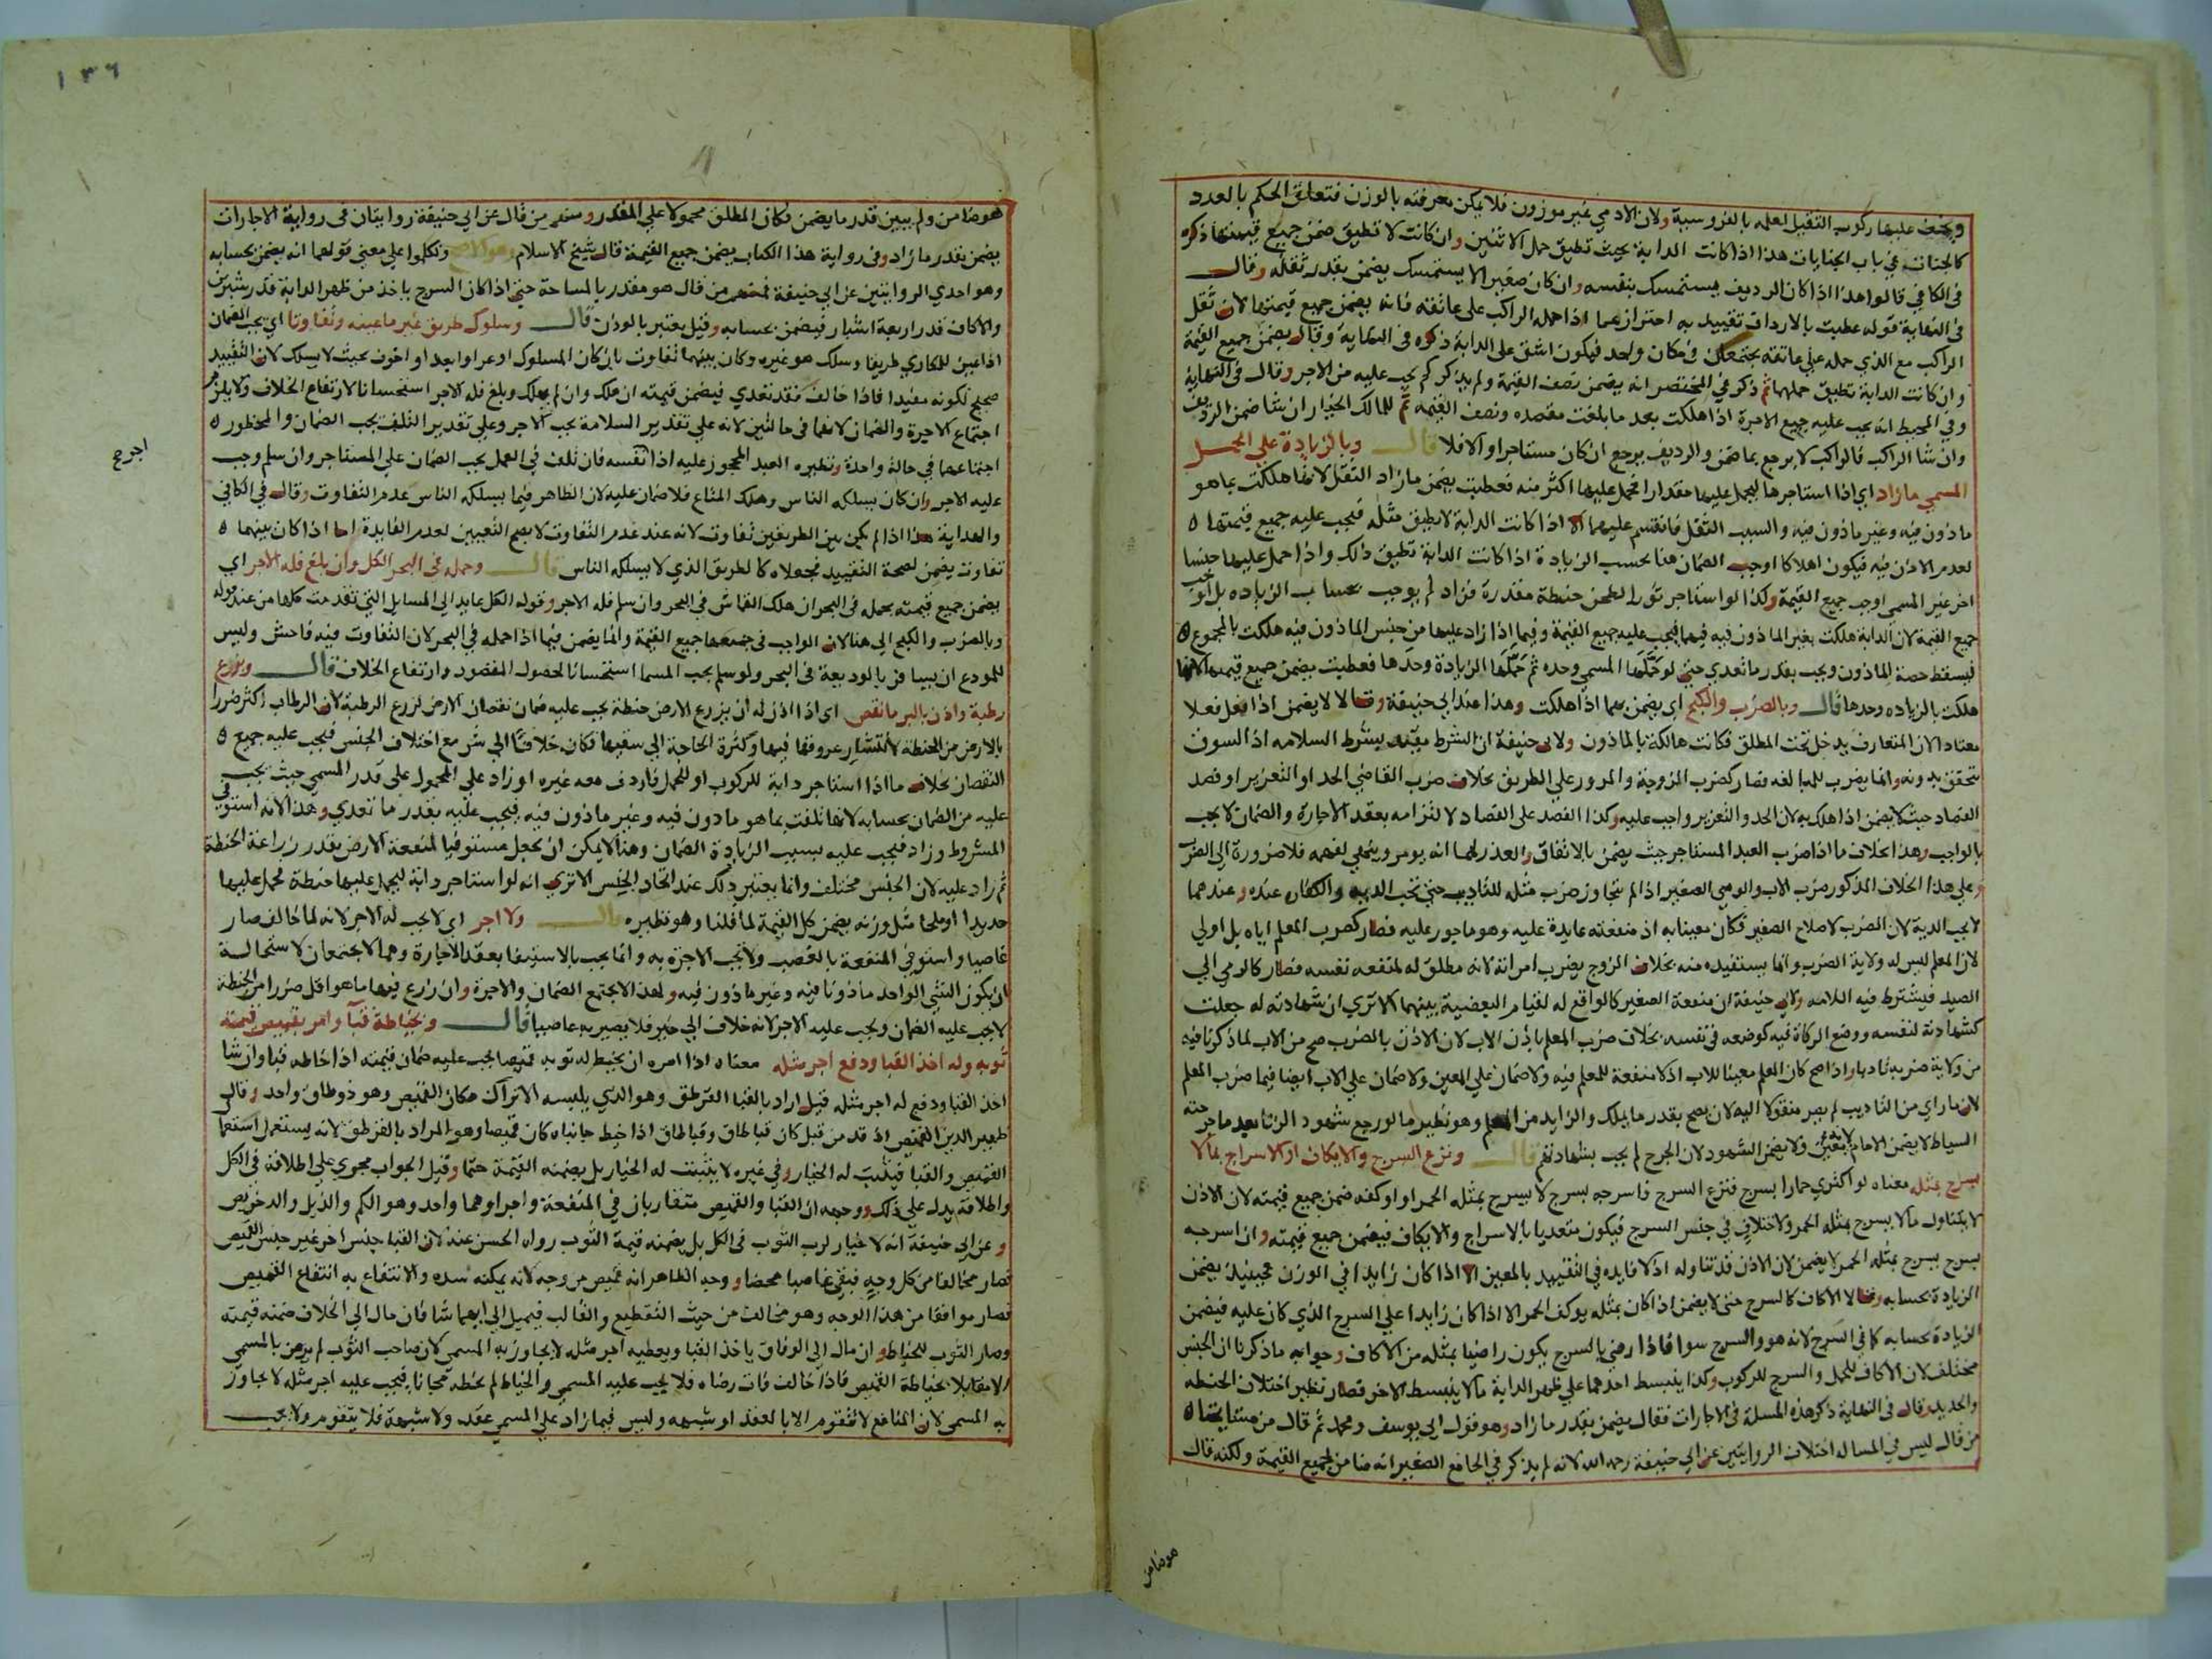 ويخف عليها ركوب الثقيل لعلمه بالفروسية ولان الادمي غير موزون فلا يمكن معرفته بالوزن فتعلق الحكم بالعدد
كالجنات في باب الجنايات هذا اذا كانت الدابة بحيث تطيق حمل الاثنين وان كانت لا تطيق ضمن جميع قيمتها ذكره
في الكافي قالوا هذا اذا كان الرديف يستمسك بنفسه وان كان صغيرا لا يستمسك يضمن بقدر ثقله وقال
في النهاية قوله عطبت بالارداف تقييد به احترازعما اذا حمله الراكب على عاتقه فانه يضمن جميع قيمتها لان ثقل
الراكب مع الذي حمله على عاتقه يجتمعان في مكان واحد فيكون اشق على الدابة ذكره في النهاية وقال يضمن جميع القيمة
وان كانت الدابة تطيق حملها ثم ذكر في المختصر انه يضمن نصف القيمة ولم يذكر كم يجب عليه من الاجر وقال في النهاية
وفي المحيط انه يجب عليه جميع الاجرة اذا هلكت بعد ما بلغت مقصده ونصف القيمة ثم للمالك الخيار ان شا ضمن الرديف
وان شا الراكب فالراكب لا يرجع بما ضمن والرديف يرجع ان كان مستاجرا والا فلا قال وبالزيادة على الحمل
المسمي ما زاد اي اذا استاجرها ليحمل عليها مقدارا فحمل عليها اكثر منه فعطبت يضمن ما زاد الثقل لانها هلكت بما هو
ماذون فيه وغير ماذون فيه والسبب الثقل فانقسم عليهما الا اذا كانت الدابة لا يطيق مثله فيجب عليه جميع قيمتها ه
لعدم الاذن فيه فيكون اهلاكا اوجب الضمان هنا بحسب الزيادة اذا كانت الدابة تطيق ذلك واذا حمل عليها جنسا
اخر غير المسمي اوجب جميع القيمة وكذا لو استاجر ثورا لطحن حنطة مقدرة فزاد لم يوجب بحساب الزياده بل اوجب
جميع القيمة لان الدابة هلكت بغير الماذون فيه فيهما فيجب عليه جميع القيمة وفيما اذا زاد عليها من جنس الماذون فيه هلكت بالمجموع ه
فيسقط حصة الماذون ويجب بقدر ما تعدي حتي لو حملها المسمي وحده ثم حملها الزيادة وحدها فعطبت يضمن جميع قيمتها لانها
هلكت بالزياده وحدها قال وبالضرب والكبح اي يضمن بهما اذا هلكت وهذا عند ابي حنيفة وقالا لا يضمن اذا فعل فعلا
معتادا لان المتعارف يدخل تحت المطلق فكانت هالكة بالماذون ولابي حنيفة ان الشرط مقيد بشرط السلامه اذ السوق
يتحقق بدونه وانما يضرب للمبالغه فصار كضرب الزوجة والمرور على الطريق بخلاف ضرب القاضي الحد او التعزير او فصد
الفصاد حيث لا يضمن اذا هلك به لان الحد والتعزير واجب عليه وكذا الفصد على الفصاد لالتزامه بعقد الاجارة والضمان لا يجب
بالواجب وهذا بخلاف ما اذا ضرب العبد المستاجر حيث يضمن بالاتفاق والعذر لهما انه يومر وينهي لفهمه فلا ضرورة الى الضرب
وعلى هذا الخلاف المذكور ضرب الاب والوصي الصغير اذا لم يتجاوز ضرب مثله للتاديب حتي تجب الدية والكفارة عنده وعندهما
لا يجب الدية لان الضرب لاصلاح الصغير فكان معينا به اذ منفعته عايدة عليه وهو ماجور عليه فصار كضرب المعلم اياه بل اولى
لان المعلم ليس له ولاية الضرب وانما يستفيده منه بخلاف الزوج يضرب امراته لانه مطلق له لمنفعة نفسه فصار كالرمي الى
الصيد فيشترط فيه السلامه ولابي حنيفة ان منفعة الصغير كالواقع له لقيام البعضية بينهما الا تري ان شهادته له جعلت
كشهادته لنفسه ووضع الزكاة فيه كوضعه في نفسه بخلاف ضرب المعلم باذن الاب لان الاذن بالضرب صح من الاب لما ذكرنا فيه
من ولاية ضربه تاديبا واذا صح كان المعلم معينا للاب اذ لا منفعة للمعلم فيه ولا ضمان على المعين ولا ضمان على الاب ايضا فيما ضرب المعلم
لان ما راي من التاديب لم يصر منقولا اليه لان يصح بقدر ما يملك والزايد من المعلم وهو نظير ما لو رجع شهود الزنا بعد ما جرحته
السياط لا يضمن الامام لانه معين ولا يضمن الشهود لان الجرح لم يجب بشهادتهم قال ونزع السرج والايكاف او الاسراج بما لا
يسرج بمثله معناه لو اكتري حمارا بسرج فنزع السرج فاسرجه بسرج لا يسرج بمثله الحمر او اوكفه ضمن جميع قيمته لان الاذن
لا يتناول ما لا يسرج بمثله الحمر ولاختلاف في جنس السرج فيكون متعديا بالاسراج والايكاف فيضمن جميع قيمته وان اسرجه
بسرج يسرج بمثله الحمر لا يضمن لان الاذن قد تناوله اذ لا فايده في التقييد بالمعين الا اذا كان زايدا في الوزن فحينيذ يضمن
الزيادة بحسابه وقالا الاكاف كالسرج حتى لا يضمن اذا كان بمثله يوكف الحمر الا اذا كان زايدا على السرج الذي كان عليه فيضمن
الزيادة بحسابه كما في السرج لانه هو والسرج سوا فاذا رضي بالسرج يكون راضيا بمثله من الاكاف وجوابه ما ذكرنا ان الجنس
مختلف لان الاكاف للحمل والسرج للركوب وكذا ينبسط احدهما على ظهر الدابة ما لا ينبسط الاخر فصار نظير اختلاف الحنطه
والحديد وقال في النهاية ذكر هذه المسلة في الاجارات فقال يضمن بقدر ما زاد وهو قول ابي يوسف ومحمد ثم قال من مشايخنا ه
من قال ليس في المساله اختلاف الروايتين عن ابي حنيفة رحمه الله لانه لم يذكر في الجامع الصغير انه ضامن لجميع القيمة ولكنه قال
هو ضامن
١٣٦
هو ضامن ولم يبين قدر ما يضمن فكان المطلق محمولا علي المقدر ومنهم من قال عن ابي حنيفة روايتان في رواية الاجارات
يضمن بقدر ما زاد وفى رواية هذا الكتاب يضمن جميع القيمة قال شيخ الاسلام وهو الاصح وتكلموا على معني قولهما انه يضمن بحسابه
وهو احدي الروايتين عن ابي حنيفة فمنهم من قال هو مقدر بالمساحة حتي اذا كان السرج ياخذ من ظهر الدابة قدر شبرين
والاكاف قدر اربعة اشبار فيضمن بحسابه وقيل يعتبر بالوزن قال وسلوك طريق غير ما عينه وتفاوتا اي يجب الضمان
اذا عين للمكاري طريقا وسلك هو غيره وكان بينهما تفاوت بان كان المسلوك اوعر او ابعد او اخوف بحيث لا يسلك لان التقييد
صحيح لكونه مفيدا فاذا خالف فقد تعدي فيضمن قيمته ان هلك وان لم يهلك وبلغ فله الاجر استحسانا لارتفاع الخلاف ولا يلزم
اجتماع الاجرة والضمان لانهما في حالتين لانه علي تقدير السلامة يجب الاجر وعلى تقدير التلف يجب الضمان والمحظور ه
اجتماعهما في حالة واحدة ونظيره العبد المحجوز عليه اذا اجر نفسه فان تلف في العمل يجب الضمان على المستاجر وان سلم وجب
اجر صح
عليه الاجر وان كان يسلكه الناس وهلك المتاع فلا ضمان عليه لان الظاهر فيما يسلكه الناس عدم التفاوت وقال في الكافي
والهداية هذا اذا لم يكن بين الطريقين تفاوت لانه عند عدم التفاوت لا يصح التعيين لعدم الفايدة اما اذا كان بينهما ه
تفاوت يضمن لصحة التقييد فجعلاه كالطريق الذي لا يسلكه الناس قال وحمله في البحر الكل وان بلغ فله الاجر اي
يضمن جميع قيمته بحمله فى البحر ان هلك القماش في البحر وان سلم فله الاجر وقوله الكل عايد الى المسايل التي تقدمت كلها من عند قوله
وبالضرب والكبح الى هنا لان الواجب في جميعها جميع القيمة وانما يضمن فيما اذا حمله في البحر لان التفاوت فيه فاحش وليس
للمودع ان يسافر بالوديعة فى البحر ولو سلم يجب المسما استحسانا لحصول المقصود وارتفاع الخلاف قال وبزرع
رطبة واذن بالبر ما نقص اي اذا اذن له ان يزرع الارض حنطة يجب عليه ضمان نقصان الارض لزرع الرطبة لان الرطاب اكثر ضررا
بالارض من الحنطة لانتشار عروقها فيها وكثرة الحاجة الى سقيها فكان خلافا الى شر مع اختلاف الجنس فيجب عليه جميع ه
النقصان بخلاف ما اذا استاجر دابة للركوب او للحمل فاردف معه غيره او زاد على المحمول على قدر المسمي حيث يجب
عليه من الضمان بحسابه لانها تلفت بما هو ماذون فيه وغير ماذون فيه فيجب عليه بقدر ما تعدي وهذا لانه استوفي
المشروط وزاد فيجب عليه بسبب الزيادة الضمان وهنا لا يمكن ان يجعل مستوفيا لمنفعة الارض بقدر زراعة الحنطة
ثم زاد عليه لان الجنس مختلف وانما يعتبر ذلك عند اتحاد الجنس الا تري انه لو استاجر دابة ليحمل عليها حنطة فحمل عليها
حديدا او ملحا مثل وزنه يضمن كل القيمة لما قلنا وهو نظيره قال ولا اجر اي لا يجب له الاجر لانه لما خالف صار
غاصبا واستوفي المنفعة بالغصب ولا تجب الاجرة به وانما يجب بالاستيفا بعقد الاجارة وهما لا يجتمعان لاستحالة
ان يكون الشي الواحد ماذونا فيه وغير ماذون فيه ولهذا لا يجتمع الضمان والاجرة وان زرع فيها ما هو اقل ضررا من الحنطة
لا يجب عليه الضمان ويجب عليه الاجر لانه خلاف الى خير فلا يصير به غاصبا قال وبخياطة قبا وامر بقميص قيمته
ثوبه وله اخذ القبا ودفع اجر مثله معناه اذا امره ان يخيط له ثوبه قميصا يجب عليه ضمان قيمته اذا خاطه قبا وان شا
اخذ القبا ودفع له اجر مثله قيل اراد بالقبا القرطق وهو الذي يلبسه الاتراك مكان القميص وهو ذو طاق واحد وقال
ظهير الدين القميص اذا قد من قبل كان قبا طاق وقبا طاق اذا خيط جانباه كان قميصا وهو المراد بالقرطق لانه يستعمل استعمال
القميص والقبا فيثبت له الخيار وفي غيره لا يثبت له الخيار بل يضمنه القيمة حتما وقيل الجواب مجري علي اطلاقه في الكل
واطلاقه يدل علي ذلك ووجهه ان القبا والقميص متقاربان في المنفعة واجزاوهما واحد وهو الكم والذيل والدخريص
وعن ابي حنيفة انه لا خيار لرب الثوب في الكل بل يضمنه قيمة الثوب رواه الحسن عنه لان القبا جنس اخر غير جنس القميص
فصار مخالفا من كل وجه فبقي غاصبا محضا ووجه الظاهر انه قميص من وجه لانه يمكنه شده والانتفاع به انتفاع القميص
فصار موافقا من هذا الوجه وهو مخالف من حيث التقطيع والقالب فيميل الى ايهما شا فان مال الى الخلاف ضمنه قيمته
وصار الثوب للخياط وان مال الى الوفاق ياخذ القبا ويعطيه اجر مثله لا يجاوز به المسمي لان صاحب الثوب لم يرض بالمسمي
الا مقابلا بخياطة القميص فاذا خالف فات رضاه فلا يجب عليه المسمي والخياط لم يخطه مجانا فيجب عليه اجر مثله لا يجاوز
به المسمي لان المنافع لا تتقوم الا بالعقد او شبهه وليس فيما زاد علي المسمي عقد ولا شبهة فلا يتقوم ولا يجب